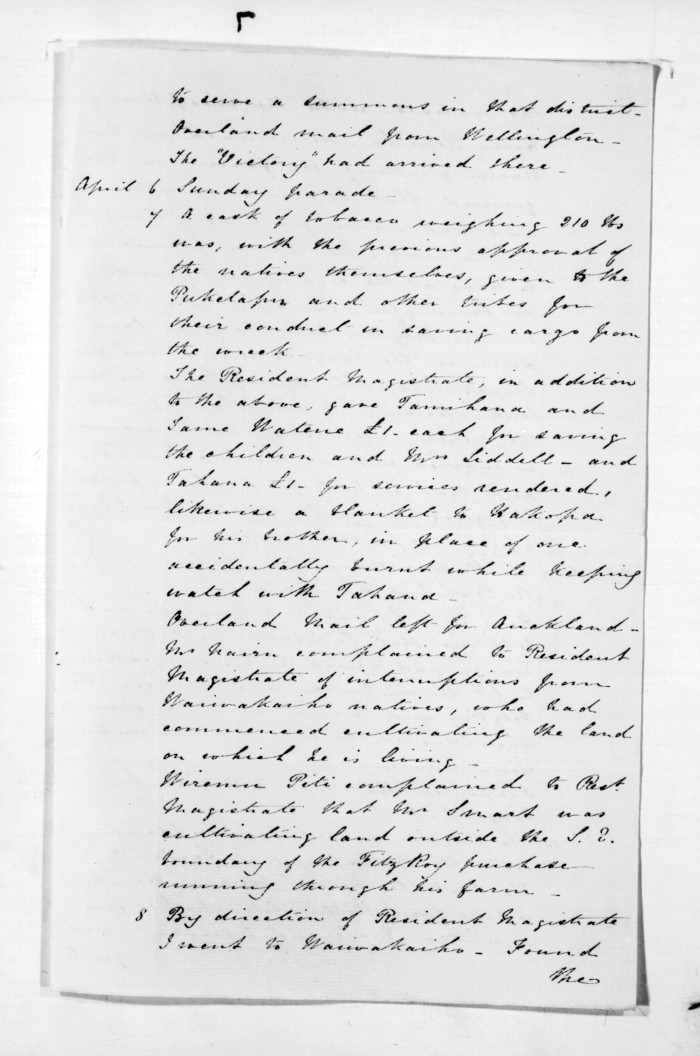 5
to serve a summons in that district -
Overland mail from Wellington -
The "Victory" had arrived there -
April 6 Sunday parade -
7 A cask of tobacco weighing 210 lbs
was, with the previous approval of
the natives themselves, given to the
Puketapu and other tribes for
their conduct in saving cargo from
the wreck -
The Resident Magistrate, in addition
to the above, gave Tamihana and
Watene £1 - each for saving
the children and Mrs Liddell - and
Tahana £1 - for services rendered,
likewise a blanket to Hakopa
for his mother, in place of one
accidentally burnt while keeping
watch with Tahana -
Overland Mail left for Auckland -
Mr Nairn complained to Resident
Magistrate of interruptions from
Waiwakaiho natives, who had
commenced cultivating the land
on which he is living -
Wiremu Piti complained to Rest.
Magistrate that Mr Smart was
cultivating land outside the S. E.
boundary of the FitzRoy purchase
running through his farm -
8 By direction of Resident Magistrate
I went to Waiwakaiho - Found
the